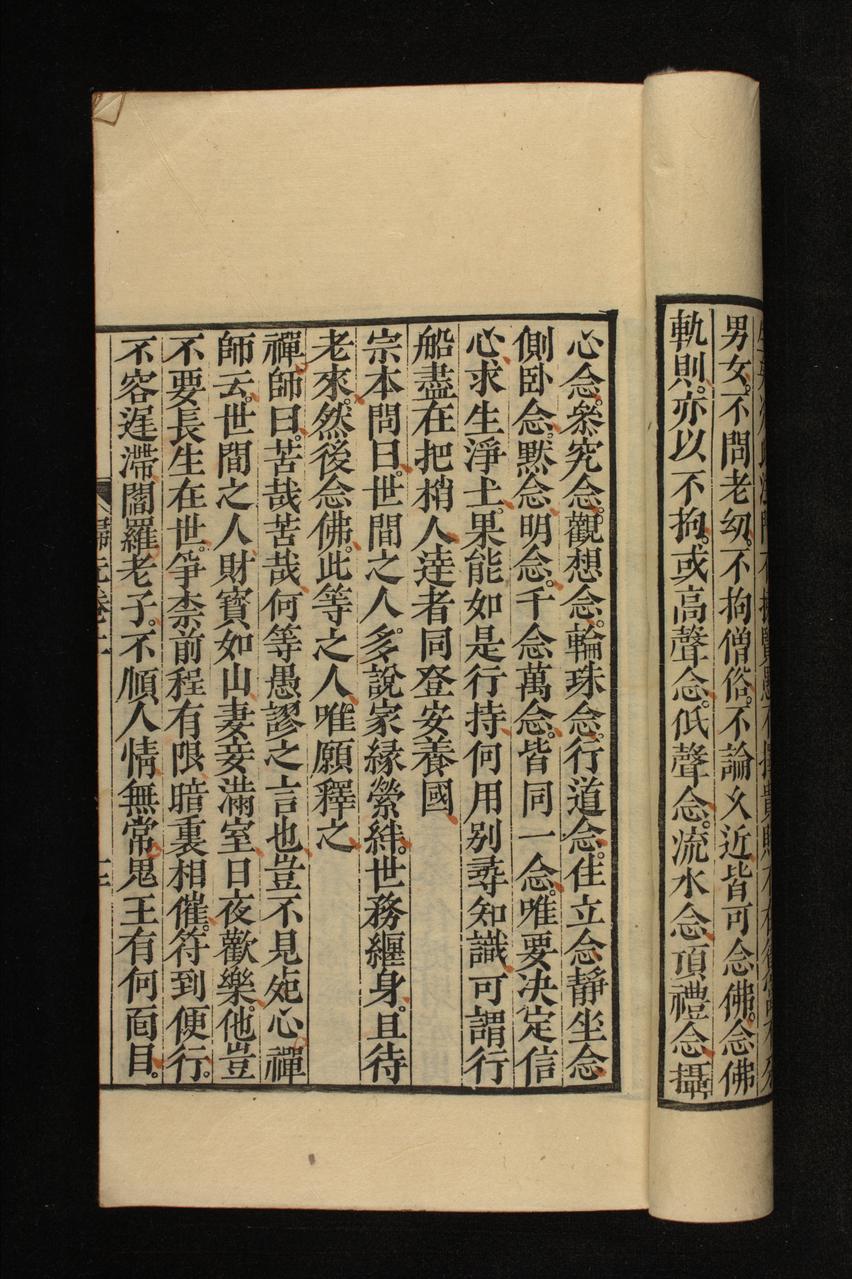 男女。不問老㓜。不拘僧俗。不論乆近。皆可念佛。念佛
軌則。亦以不拘。或高聲念。低聲念。流水念。頂禮念。攝
心念。叅究念。觀想念。輪珠念。行道念。住立念。靜坐念。
側卧念。默念。明念。千念萬念。皆同一念。唯要决定信
心。求生淨土。果能如是行持。何用别尋知識。可謂行
船盡在把梢人。達者同登安養國。
宗本問曰。世間之人。多說家緣縈絆。世務纒身。且待
老來。然後念佛。此等之人。唯願釋之
禪師曰。苦哉苦哉。何等愚謬之言也。豈不見死心禪
師云。世間之人。財寶如山。妻妾滿室。日夜歡樂。他豈
不要長生在世。爭柰前程有限。暗裏相催。符到便行。
不容遲滯。閻羅老子。不順人情。無常鬼王。有何面目。